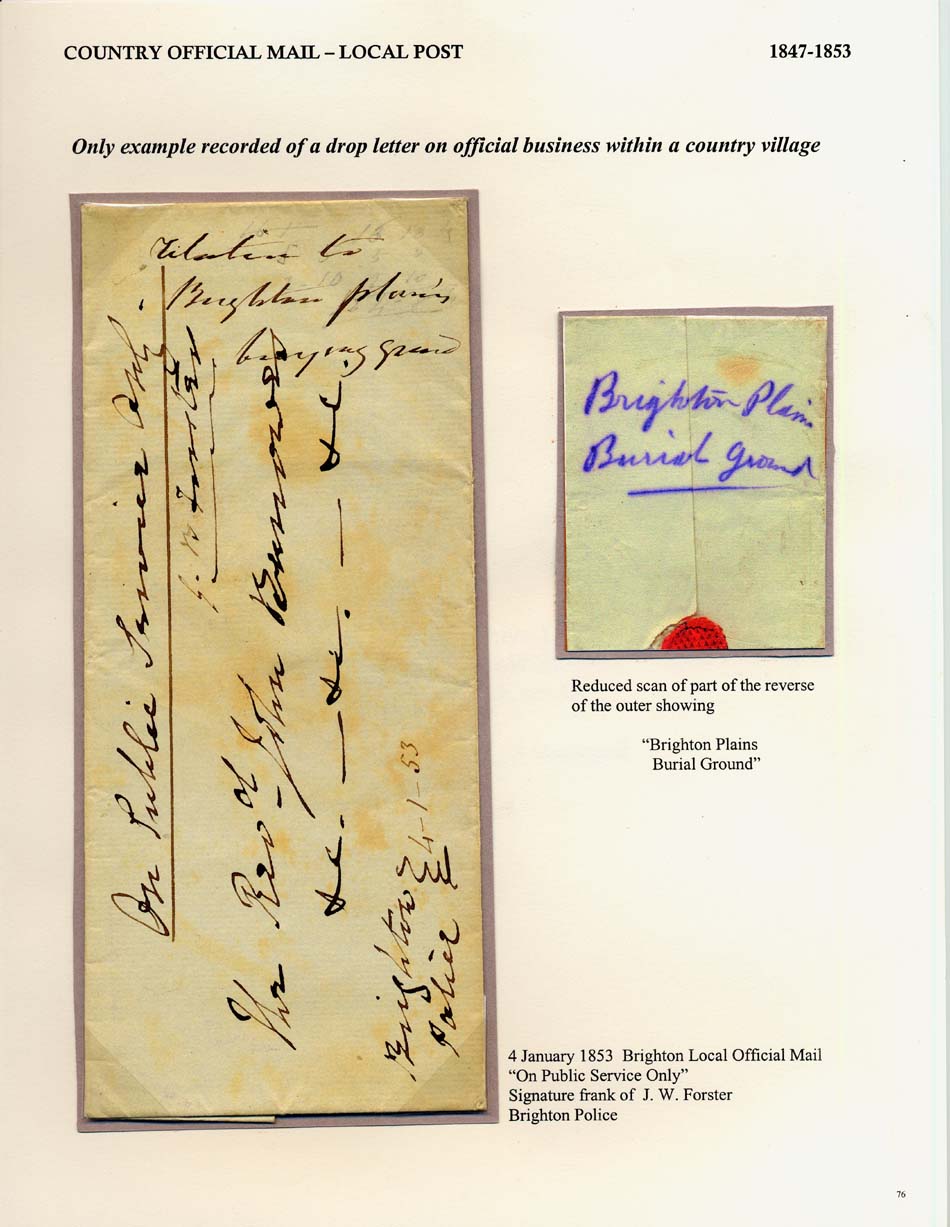 COUNTRY OFFICIAL MAIL – LOCAL POST
1847-1853
Only example recorded of a drop letter on official business within a country village
relation to
Brighton plains
burying ground
On Public Service Only
Forster
The Revd John Burrowes
&c. — &c. — &c.
Brighton
Police
4-1-53
Brighton Plains
Burial Ground
Reduced scan of part of the reverse
of the outer showing
“Brighton Plains
Burial Ground”
4 January 1853 Brighton Local Official Mail
“On Public Service Only”
Signature frank of J. W. Forster
Brighton Police
76